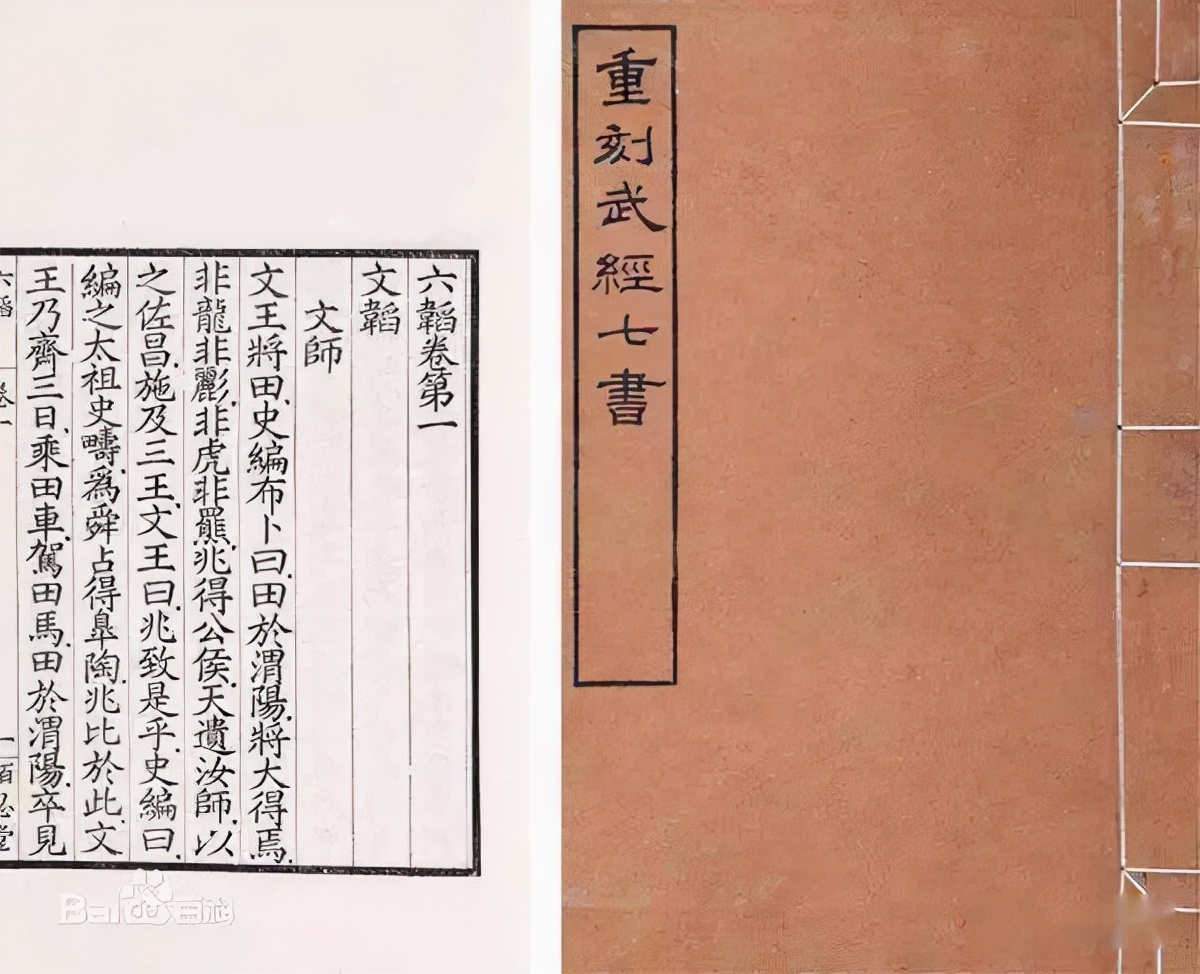 重刻武經七書
六韜卷第一
文韜
文師
文王將田.史編布卜曰.田於渭陽.將大得焉.
非龍非彲.非虎非羆.兆得公侯.天遺汝師.以
之佐昌.施及三王.文王曰.兆致是乎.史編曰.
編之太祖史疇.爲舜占得皐陶.兆比於此.文
王乃齊三日.乘田車.駕田馬.田於渭陽.卒見
六韜 卷一 一
Bai百科